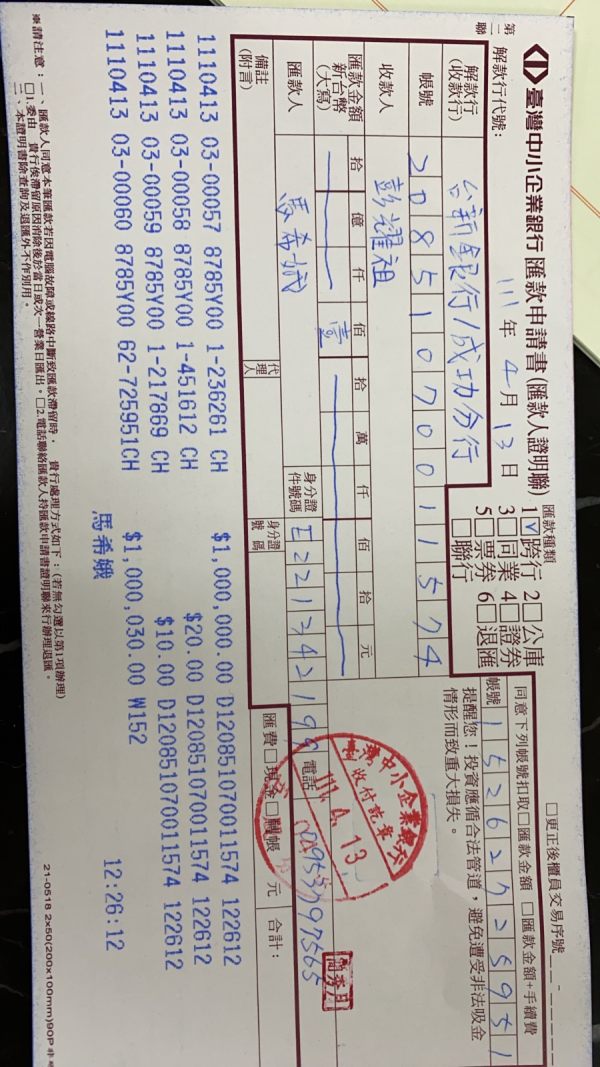 第二聯
臺灣中小企業銀行 匯款申請書(匯款人證明聯)
□更正後櫃員交易序號
解款行代號:
111年 4月 13日
匯款種類
1☑跨行 2□公庫
3□同業 4□證券
5□票券 6□退匯
□聯行
同意下列帳號扣取□匯款金額 □匯款金額+手續費
帳號 15262725951
提醒您!投資應循合法管道,避免遭受非法吸金
情形而致重大損失。
解款行(收款行) 台新銀行/成功分行
帳號 20851070011574
收款人 彭耀祖
匯款金額 新台幣(大寫) 拾 億 仟 佰 拾 萬 仟 佰 拾 元
壹
匯款人 馬希娥
身分證件號碼 E221342199
電話 0953797565
代理人
身分證號碼
備註(附言)
匯費 □現金 □轉帳 元 合計:
臺灣中小企業銀行
111. 4. 13
1110413 03-00057 8785Y00 1-236261 CH $1,000,000.00 D120851070011574 122612
1110413 03-00058 8785Y00 1-451612 CH $20.00 D120851070011574 122612
1110413 03-00059 8785Y00 1-217869 CH $10.00 D120851070011574 122612
1110413 03-00060 8785Y00 62-725951CH $1,000,030.00 W152
馬希娥 12:26:12
※請注意:一、匯款人同意本筆匯款若因電腦故障或線路中斷致匯款滯留時,貴行處理方式如下:(若無勾選以第1項辦理)
□1.委由 貴行俟滯留原因消除後於當日或次一營業日匯出。□2.電話聯絡匯款人持匯款申請書證明聯來行辦理退匯。
二、本證明書除查詢及退匯外不作別用。
21-0518 2x50(200x100mm)90P